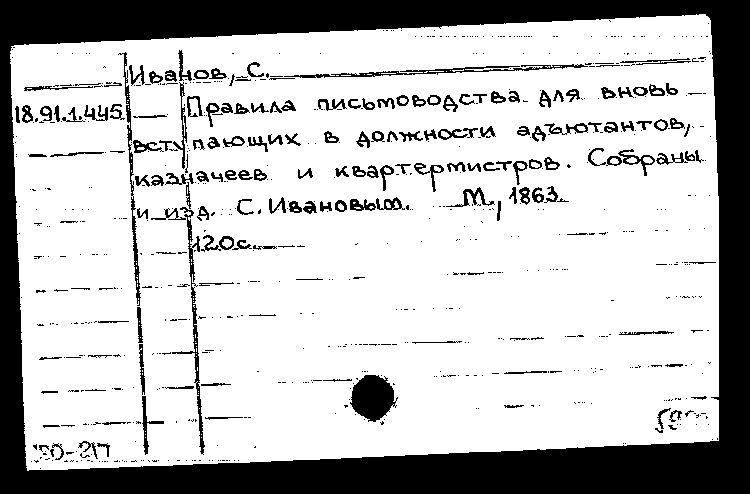 Иванов, С.
18.91.1.445 Правила письмоводства для вновь
вступающих в должности адъютантов,
казначеев и квартермистров. Собраны
и изд. С. Ивановым. М., 1863.
120с.